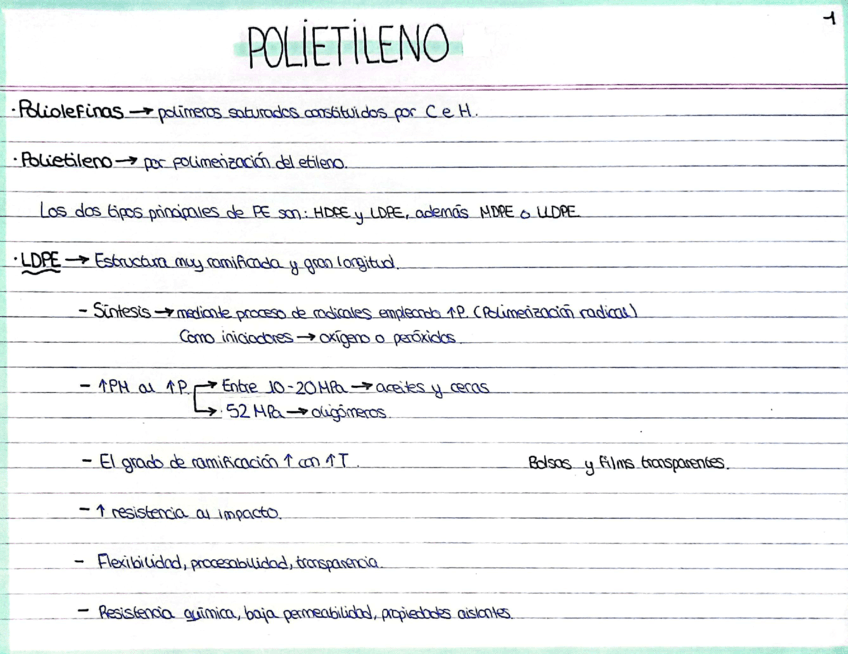 1
POLIETILENO
· Poliolefinas → polímeros saturados constituidos por C e H.
· Polietileno → por polimerización del etileno.
Los dos tipos principales de PE son: HDPE y LDPE, además MDPE o LLDPE
· LDPE → Estructura muy ramificada y gran longitud.
- Síntesis → mediante proceso de radicales empleando ↑P. (Polimerización radical)
Como iniciadores → oxígeno o peróxidos.
- ↑PM al ↑P. → Entre 10-20 MPa → aceites y ceras
→ 52 MPa → oligómeros.
- El grado de ramificación ↑ con ↑T. Bolsas y films transparentes.
- ↑ resistencia al impacto.
- Flexibilidad, procesabilidad, transparencia.
- Resistencia química, baja permeabilidad, propiedades aislantes.